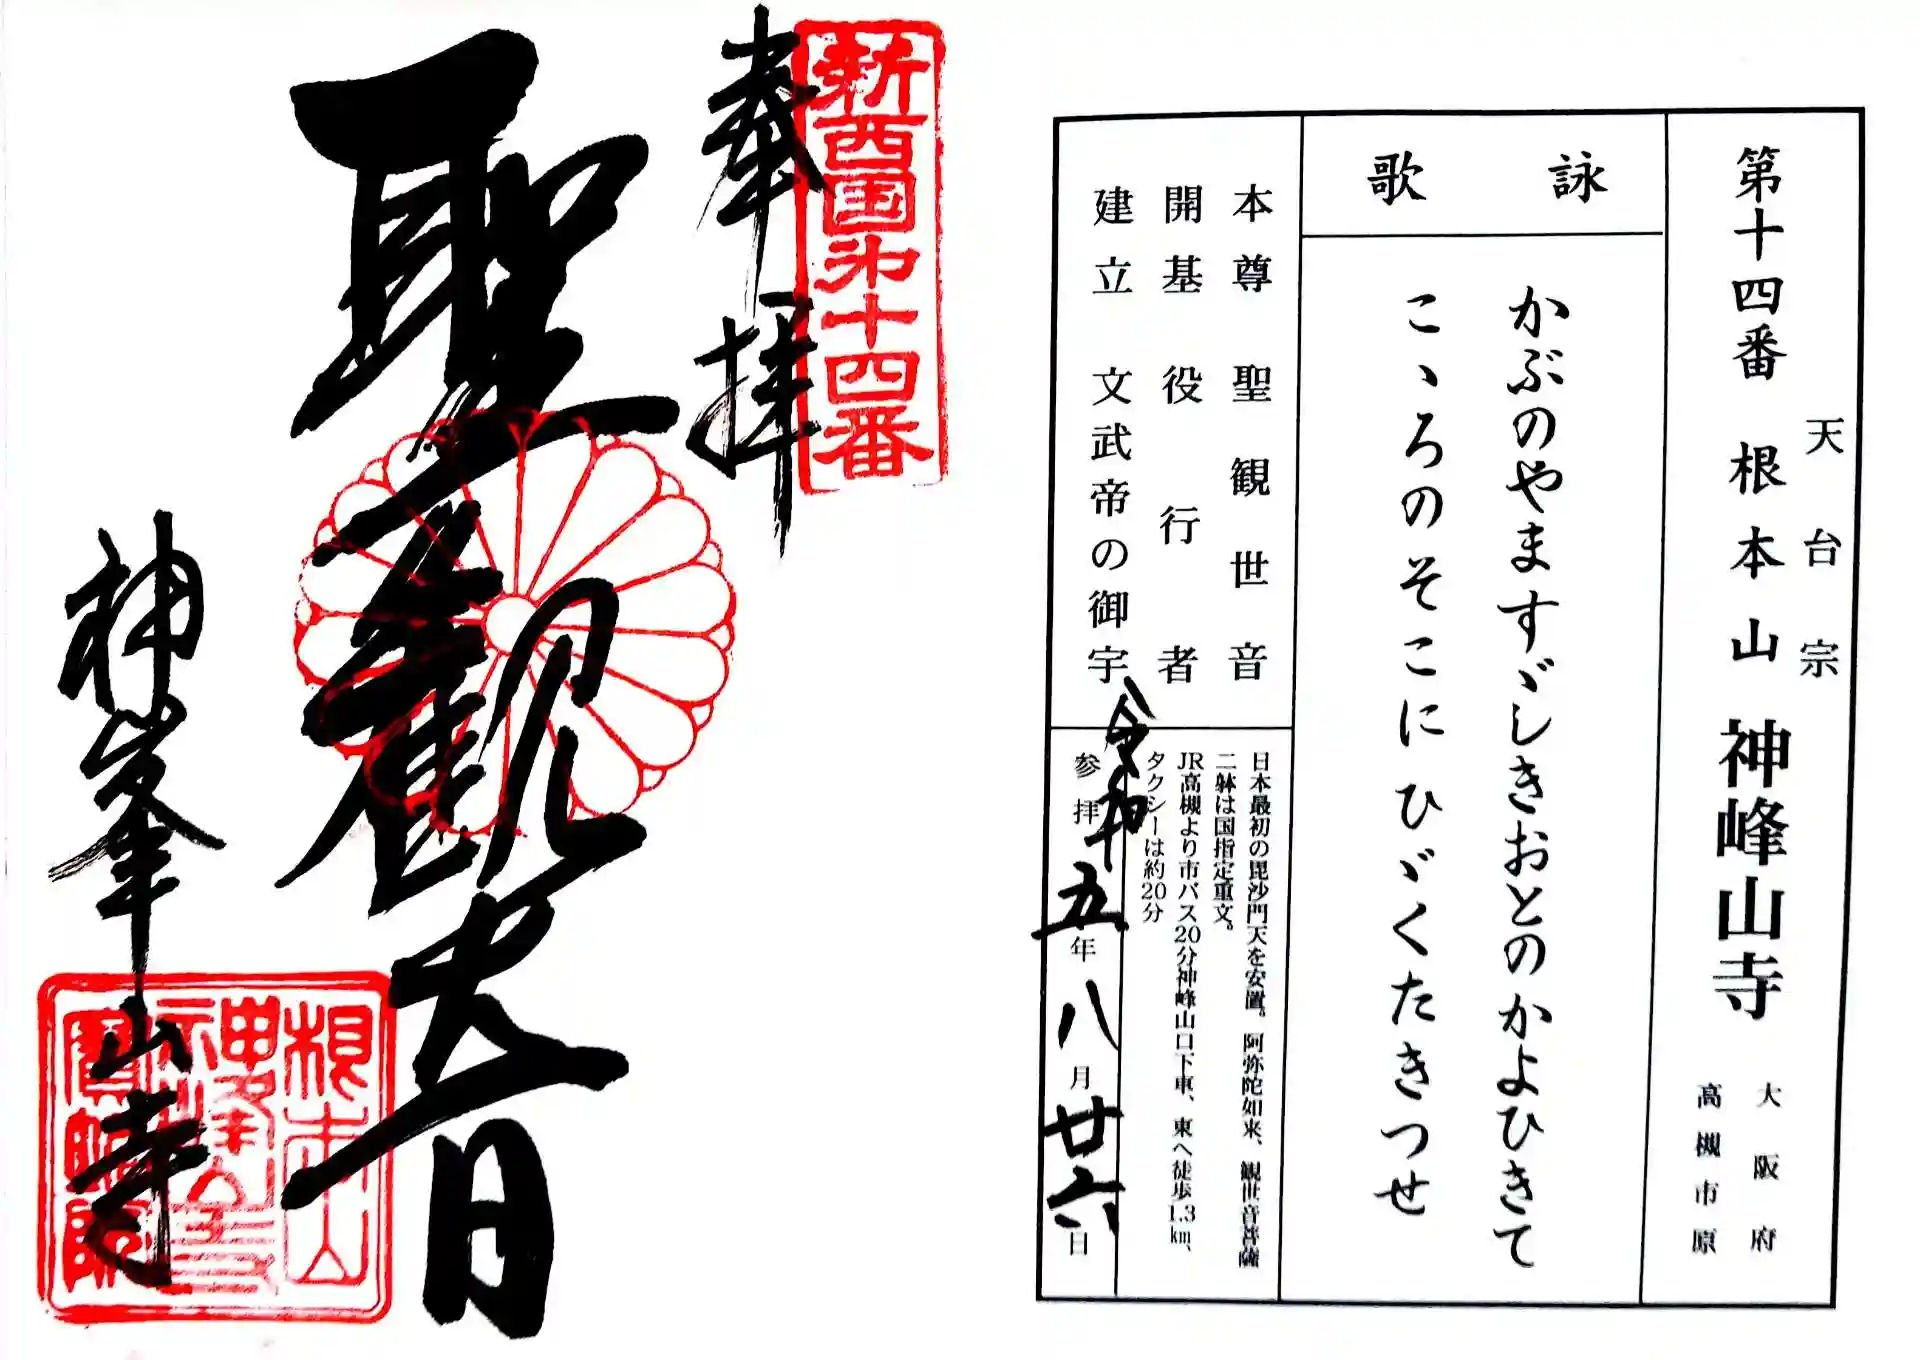 天台宗
第十四番 根本山 神峰山寺
大阪府
高槻市原
詠歌
かぶのやますゞしきおとのかよひきて
こゝろのそこにひゞくたきつせ
本尊 聖観世音
開基 役行者
建立 文武帝の御宇
日本最初の毘沙門天を安置。阿弥陀如来、観世音菩薩
二躰は国指定重文。
JR高槻より市バス20分神峰山口下車、東へ徒歩1.3㎞、
タクシーは約20分
参拝 令和五年八月廿六日
新西国第十四番
奉拝
聖観世音
神峯山寺
根本山
神峯山寺
寶塔院